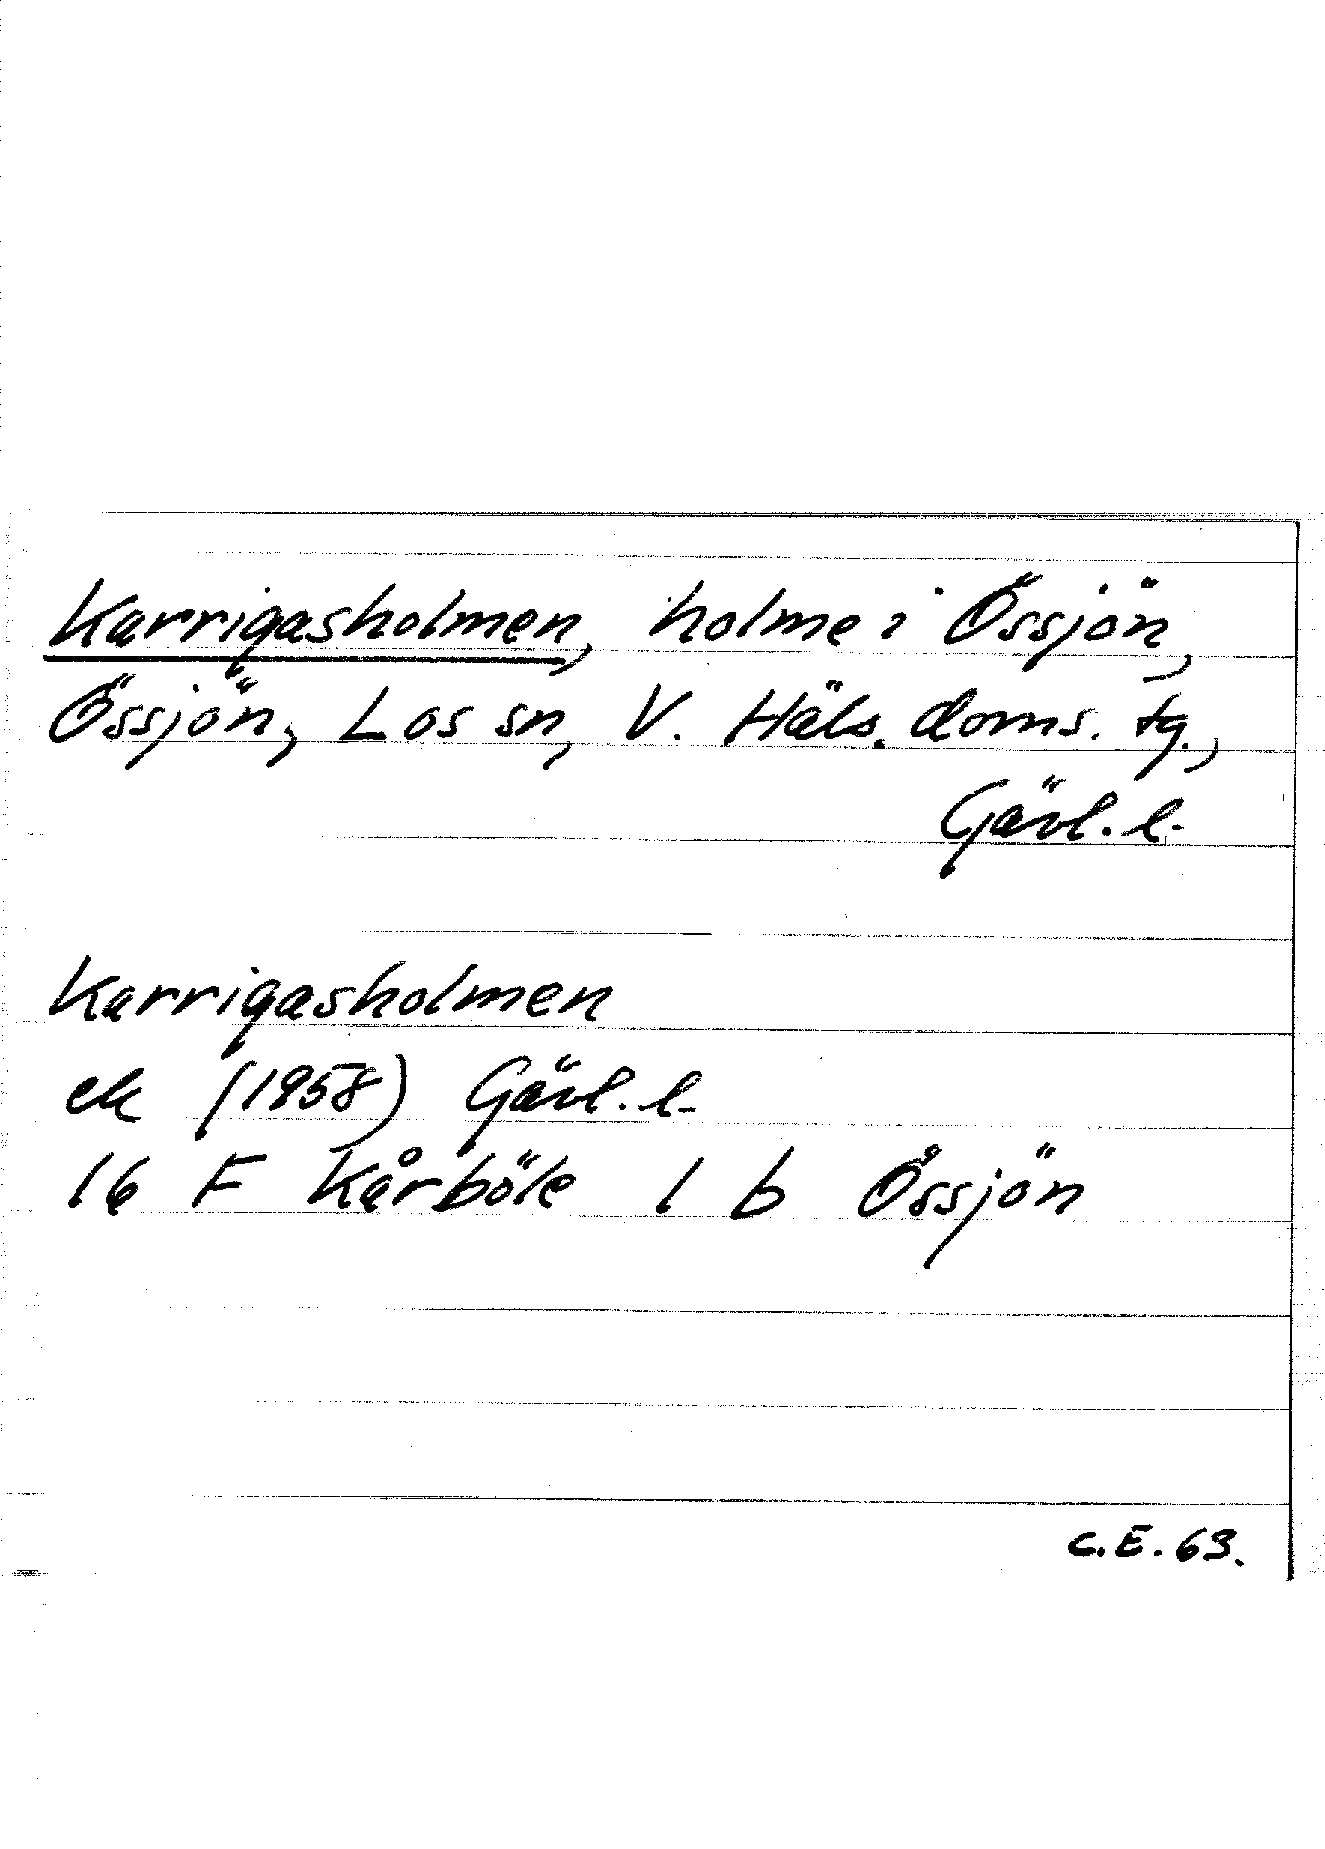 Karrigasholmen, holme i Össjön,
Össjön, Los sn, V. Häls. doms. tg.,
Gävl. l.
Karrigasholmen
ek (1958) Gävl. l.
16 F Kårböle 1 b Össjön
C.E. 63.